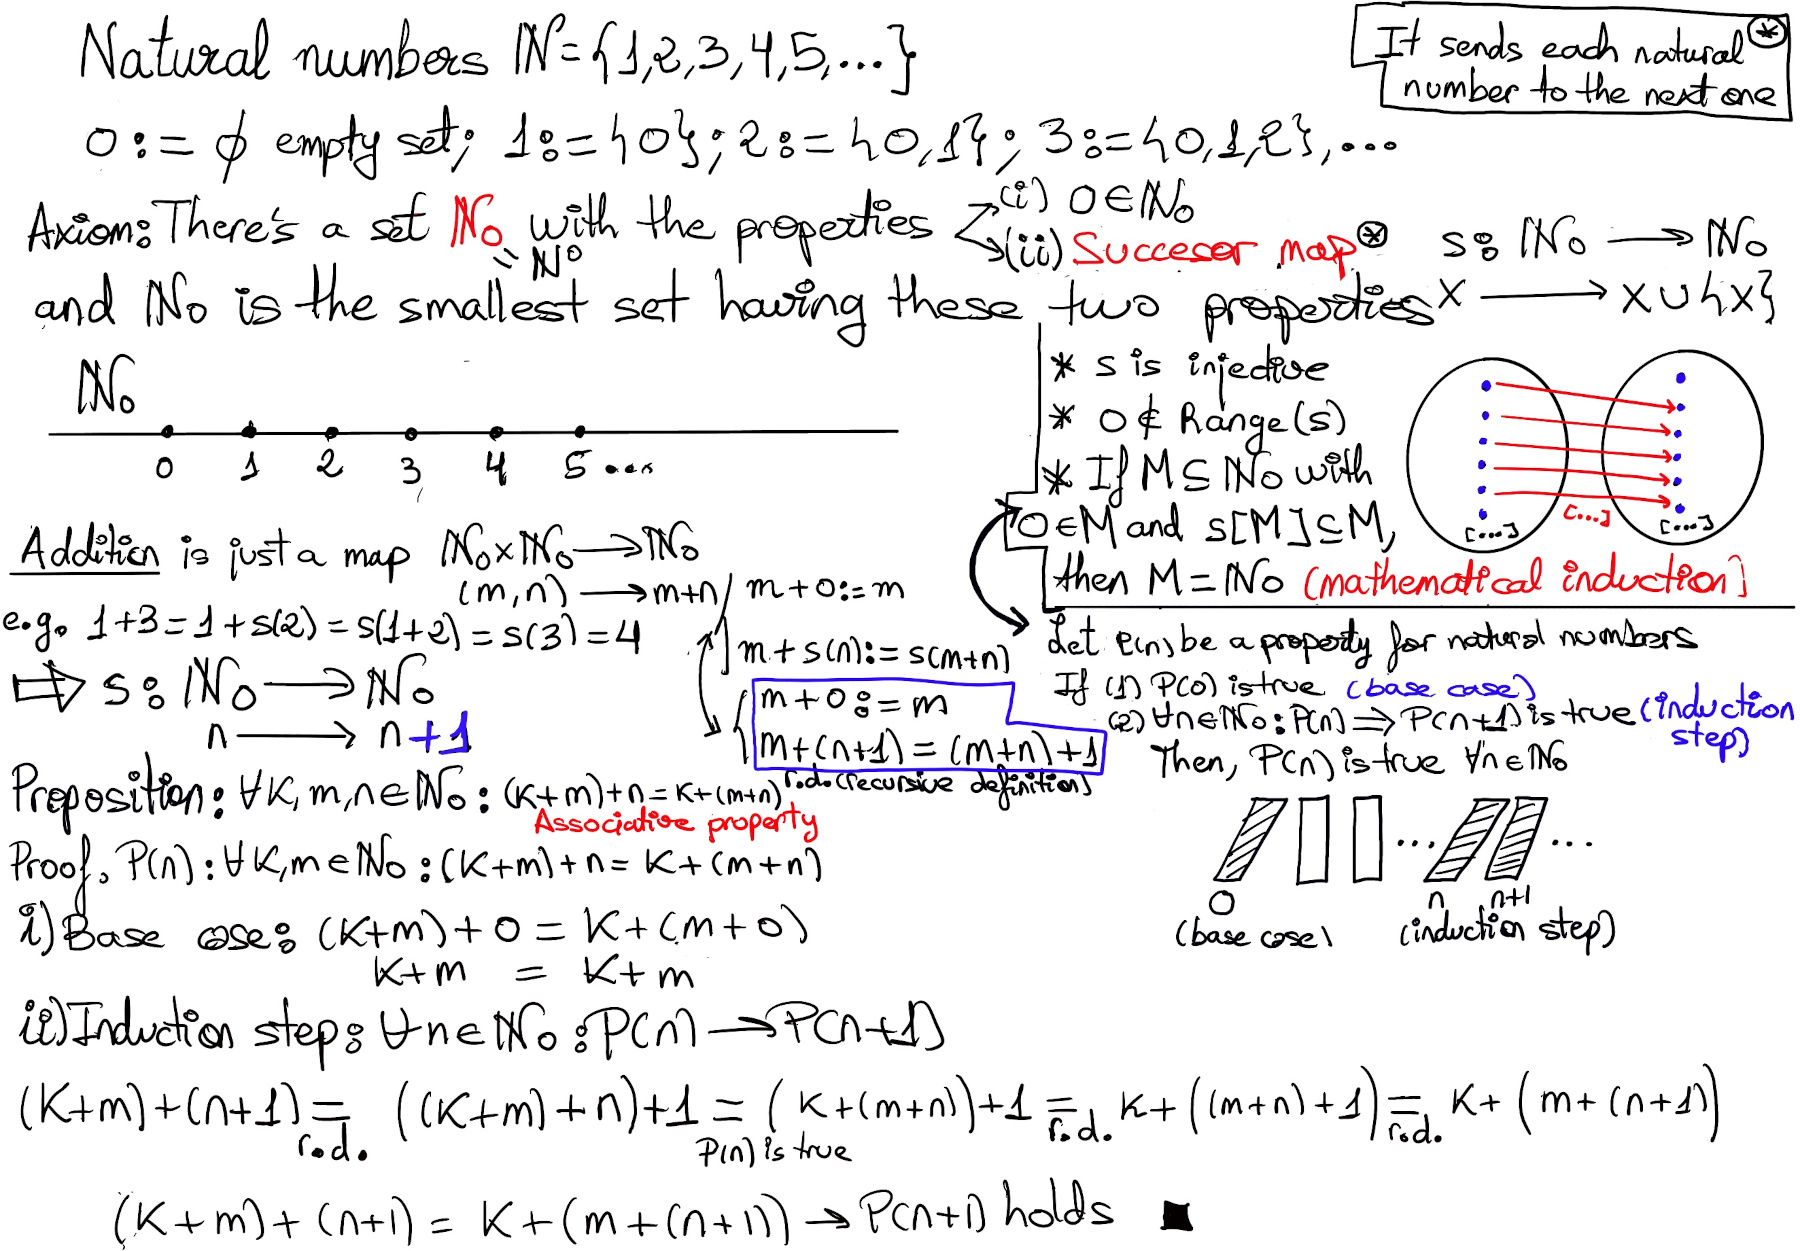 Natural numbers ℕ={1,2,3,4,5,...}
It sends each natural ⊛
number to the next one
0:=∅ empty set; 1:={0}; 2:={0,1}; 3:={0,1,2},...
Axiom: There's a set ℕ₀ with the properties
= ℕ⁰
(i) 0∈ℕ₀
(ii) Succesor map ⊛ s: ℕ₀ → ℕ₀
x → x∪{x}
and ℕ₀ is the smallest set having these two properties
ℕ₀
0 1 2 3 4 5 ...
* s is injective
* 0∉Range(s)
* If M⊆ℕ₀ with
0∈M and s[M]⊆M,
then M=ℕ₀ (mathematical induction)
[...] [...] [...]
Addition is just a map ℕ₀×ℕ₀→ℕ₀
(m,n)→m+n / m+0:=m
e.g. 1+3=1+s(2)=s(1+2)=s(3)=4
m+s(n):=s(m+n)
⇒ s: ℕ₀→ℕ₀
n→n+1
m+0:=m
m+(n+1)=(m+n)+1
r.d. (recursive definition)
Let P(n) be a property for natural numbers
If (1) P(0) is true (base case)
(2) ∀n∈ℕ₀: P(n)⇒P(n+1) is true (induction
step)
Then, P(n) is true ∀n∈ℕ₀
... ...
0 n n+1
(base case) (induction step)
Proposition: ∀k,m,n∈ℕ₀: (k+m)+n=k+(m+n)
Associative property
Proof. P(n): ∀k,m∈ℕ₀: (k+m)+n=k+(m+n)
i) Base case: (k+m)+0=k+(m+0)
k+m = k+m
ii) Induction step: ∀n∈ℕ₀: P(n)→P(n+1)
(k+m)+(n+1) = ((k+m)+n)+1 = (k+(m+n))+1 = k+((m+n)+1) = k+(m+(n+1))
r.d. P(n) is true r.d. r.d.
(k+m)+(n+1)=k+(m+(n+1))→P(n+1) holds ■